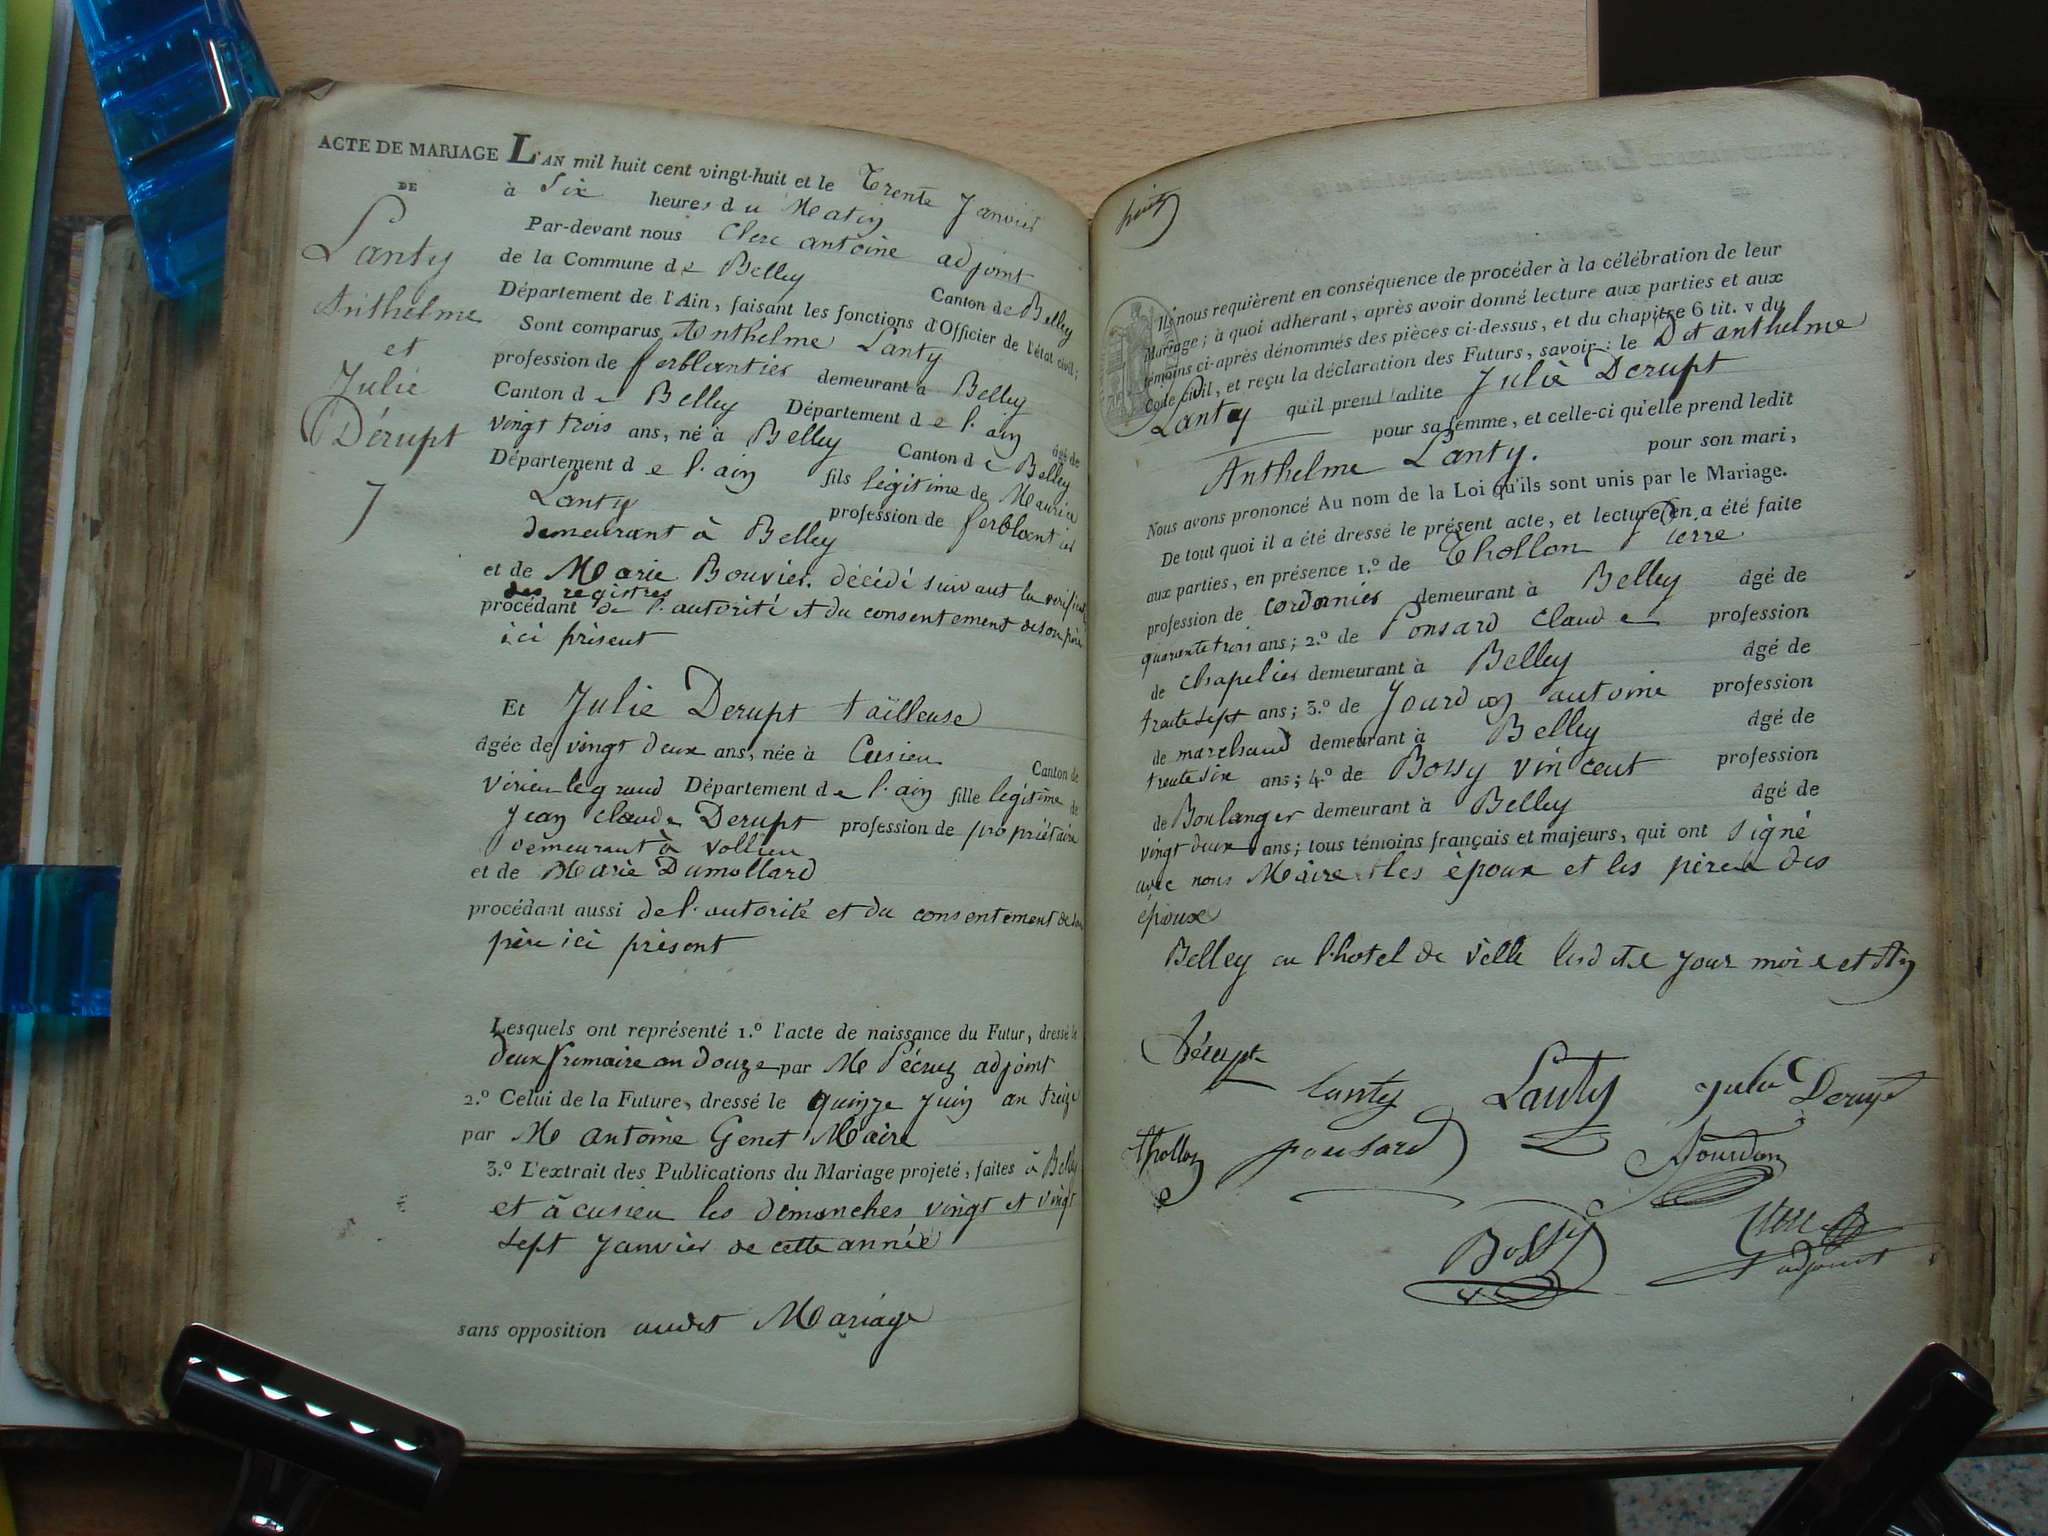 ACTE DE MARIAGE
DE
Lanty
Anthelme
et
Julie
Dérupt
7
L'AN mil huit cent vingt-huit et le Trente Janvier
à Six heures du Matin
Par-devant nous Clerc antoine adjoint
de la Commune de Belley Canton de Belley
Département de l'Ain, faisant les fonctions d'Officier de l'état civil;
Sont comparus Anthelme Lanty
profession de ferblantier demeurant à Belley
Canton de Belley Département de l'ain âgé de
vingt trois ans, né à Belley Canton de Belley
Département de l'ain fils légitime de Maurice
Lanty profession de ferblantier
demeurant à Belley
et de Marie Bouvier. décédé suivant la
des registres
procédant de l'autorité et du consentement de son père
ici présent
Et Julie Derupt tailleuse
âgée de vingt deux ans, née à Cusieu Canton de
virieu le grand Département de l'ain fille légitime de
Jean Claude Derupt profession de propriétaire
demeurant à vollieu
et de Marie Dumollard
procédant aussi de l'autorité et du consentement de son
père ici présent
Lesquels ont représenté 1.º l'acte de naissance du Futur, dressé le
deux frimaire an douze par M Pécruz adjoint
2.º Celui de la Future, dressé le quinze Juin an treize
par M antoine Genet Maire
3.º L'extrait des Publications du Mariage projeté, faites à Belley
et à cusieu les dimanches vingt et vingt
sept Janvier de cette année
sans opposition audit Mariage
huit
Ils nous requièrent en conséquence de procéder à la célébration de leur
Mariage; à quoi adhérant, après avoir donné lecture aux parties et aux
témoins ci-après dénommés des pièces ci-dessus, et du chapitre 6 tit. v du
Code civil, et reçu la déclaration des Futurs, savoir: le Dit anthelme
Lanty qu'il prend ladite Julie Derupt
pour sa femme, et celle-ci qu'elle prend ledit
Anthelme Lanty. pour son mari,
Nous avons prononcé Au nom de la Loi qu'ils sont unis par le Mariage.
De tout quoi il a été dressé le présent acte, et lecture en a été faite
aux parties, en présence 1.º de Thollon Pierre
profession de cordonnier demeurant à Belley âgé de
quarante trois ans; 2.º de Ponsard Claude profession
de chapelier demeurant à Belley âgé de
trente sept ans; 3.º de Jourdan antoine profession
de marchand demeurant à Belley âgé de
trente six ans; 4.º de Bossy vincent profession
de Boulanger demeurant à Belley âgé de
vingt deux ans; tous témoins français et majeurs, qui ont signé
avec nous Maire et les époux et les pères des
époux
Belley en l'hotel de ville lesdits Jour mois et an
Dérupt
Lanty Lanty Julie Derupt
thollon ponsard Jourdan
Bossy Clerc
adjoint